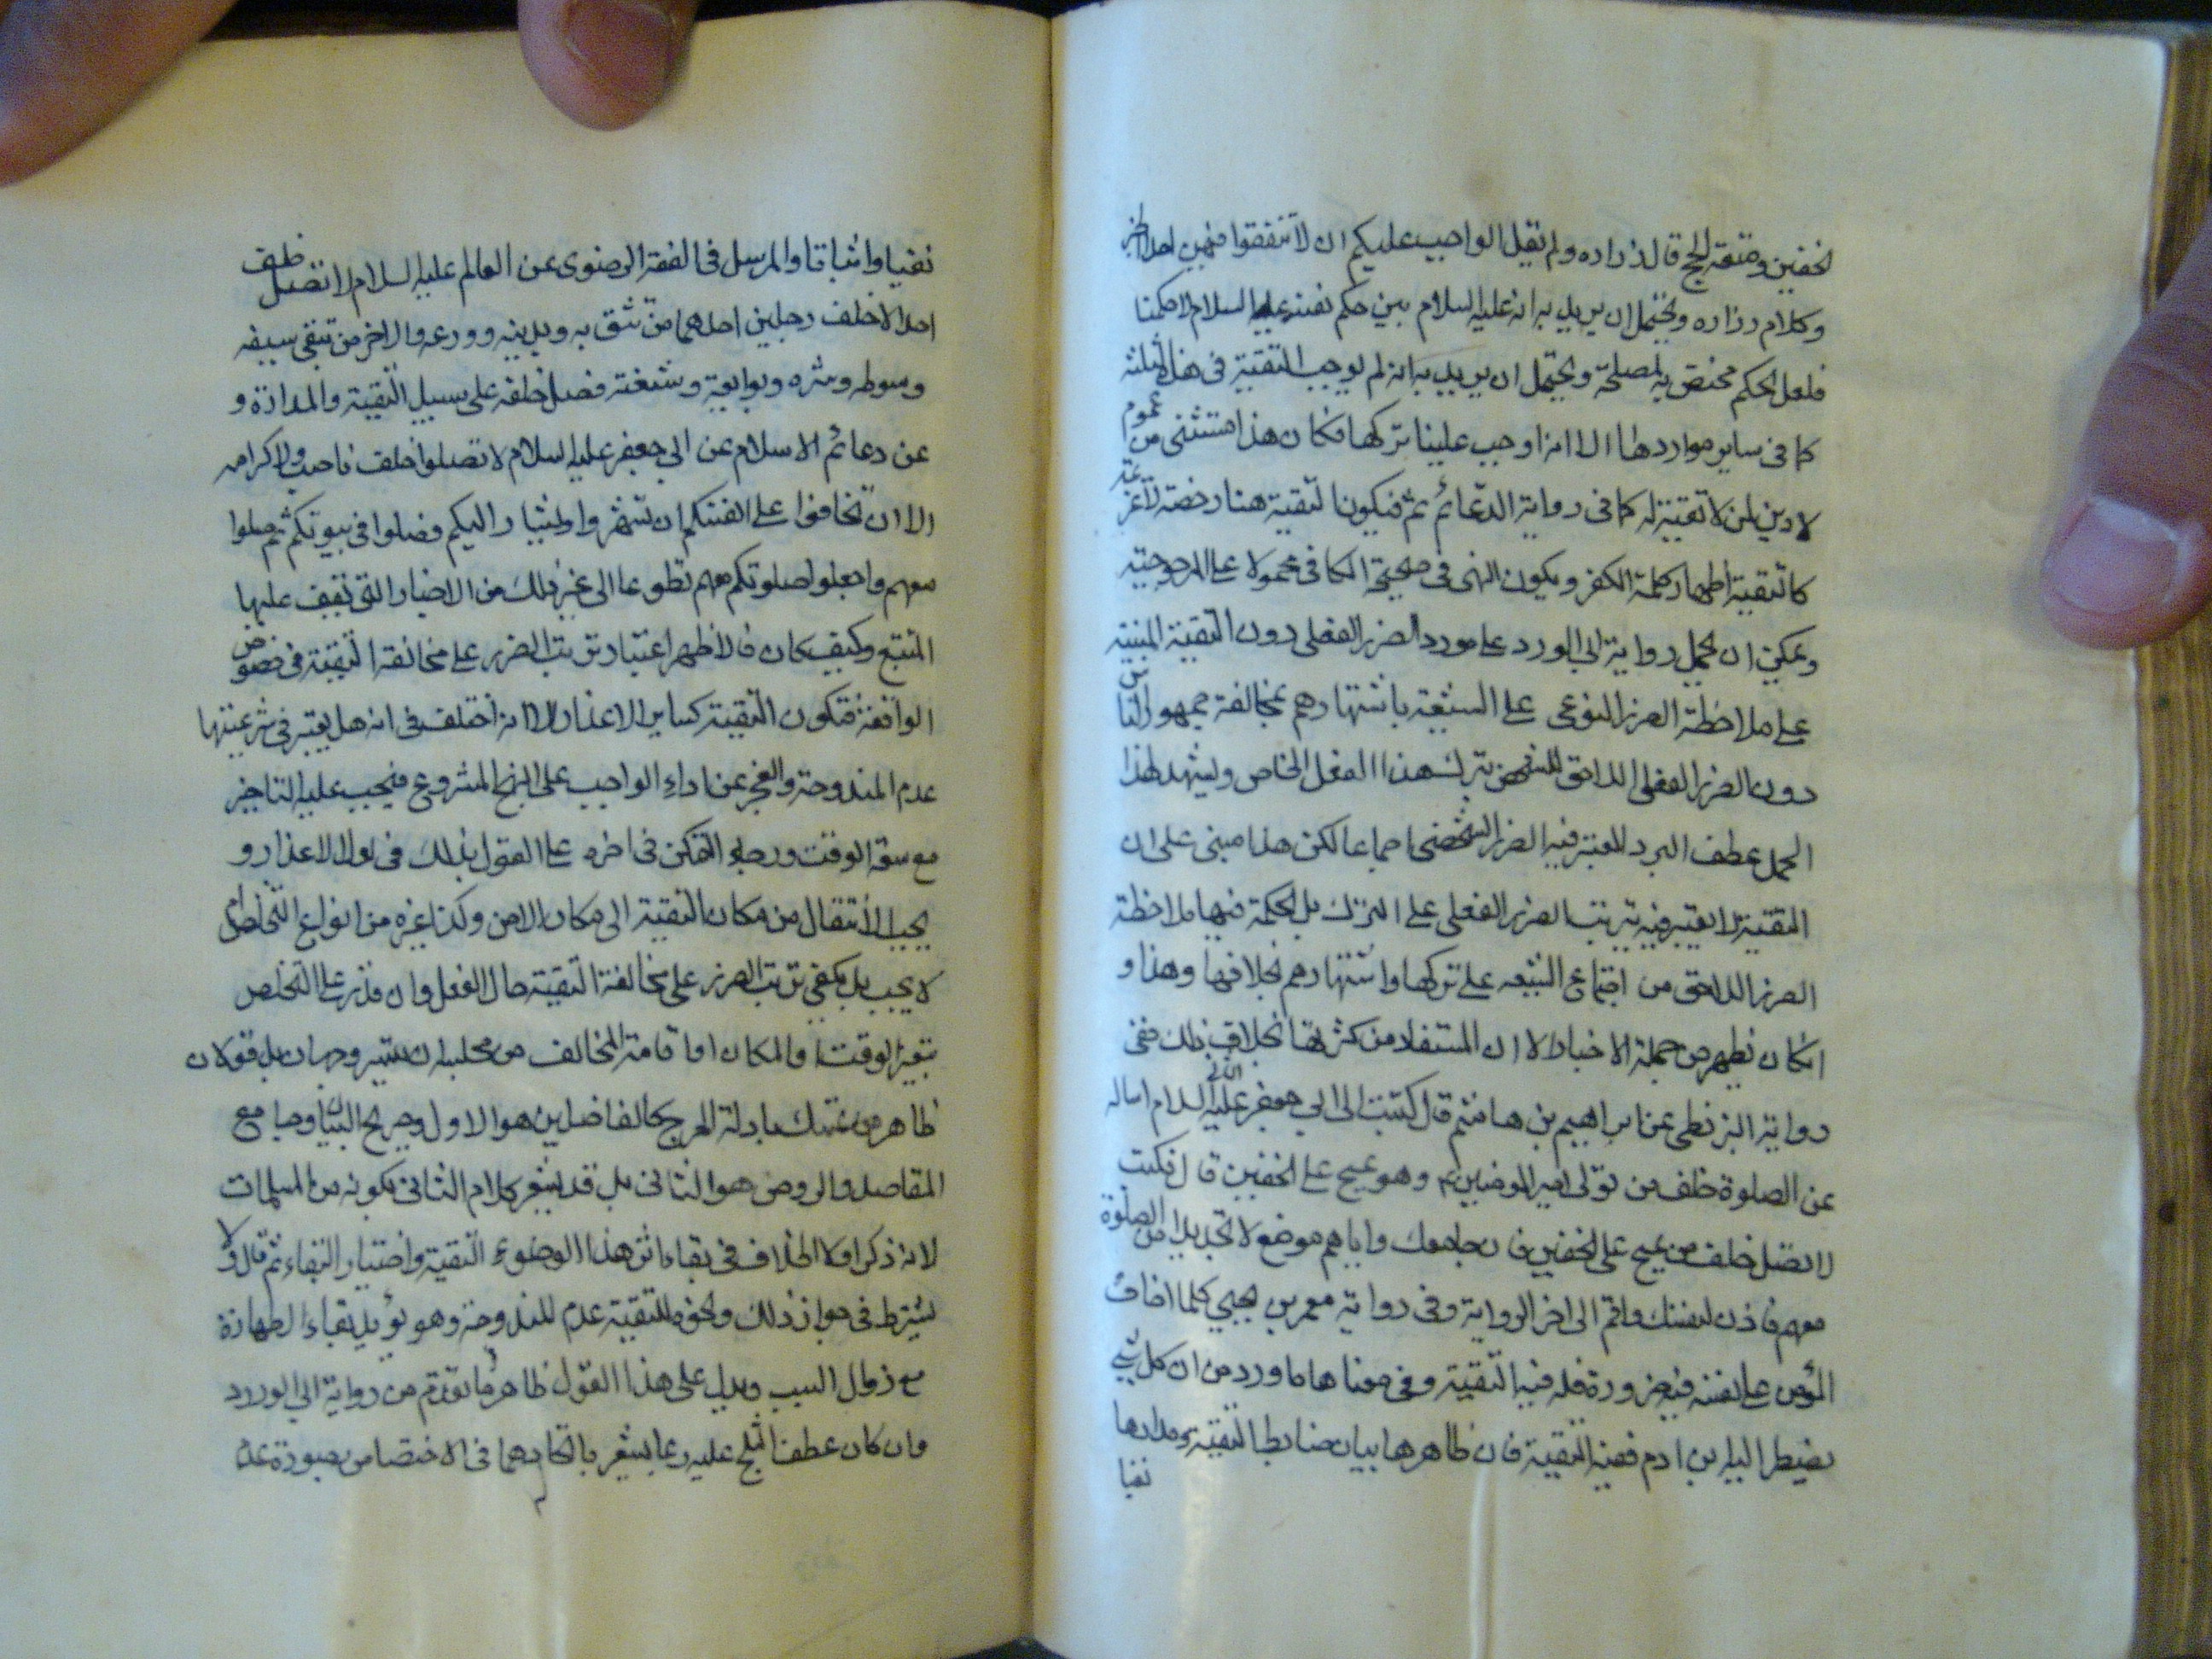 الخفين ومتعة الحج قال زراره ولم يقل الواجب عليكم ان لا تتقوا فيهن احدا الخبر
وكلام زراره ويحتمل ان يريد به انه عليه السلام بين حكم نفسه عليه السلام لا حكمنا
فلعل الحكم مختص به لمصلحة ويحتمل ان يريد به انه لم يوجب التقية فى هذه الثلثة
كما فى ساير مواردها الا انه اوجب علينا تركها فكان هذا مستثنى من عموم
لا دين لمن لا تقية له كما فى رواية الدعائم ثم فتكون التقية هنا رخصة لا عزيمة
كالتقية اظهار كلمة الكفر ويكون النهى فى صحيحة الكافى محمولا على المرجوحية
ويمكن ان يحمل رواية ابى الورد على مورد الضرر الفعلى دون التقية المبنية
على ملاحظة الضرر النوعى على الشيعة باشتهارهم بمخالفة جمهور الناس
دون الضرر الفعلى اللاحق للشخص بترك هذا الفعل الخاص وليشهد لهذا
الحمل عطف البرد المعتبر فيه الضرر الشخصى اجماعا لكن هذا مبنى على ان
التقية لا يعتبر فيه ترتب الضرر الفعلى على الترك بل الحكمة فيها ملاحظة
الضرر اللاحق من اجتماع الشيعه على تركها واشتهارهم بخلافها وهذا و
انكان يظهر من جملة الاخبار الا ان المستفاد من كثرتها بخلاف ذلك ففى
رواية البزنطى عن ابراهيم بن هاشم قال كتبت الى ابى جعفر الثانى عليه السلام اساله
عن الصلوة خلف من تولى امير المومنين ع وهو يمسح على الخفين قال فكتب
لا تصل خلف من يمسح على الخفين فان جامعك واياهم موضع لا تجد بدا من الصلوة
معهم فاذن لنفسك واقم الى اخر الرواية وفى رواية معمر بن يحيى كلما خاف
المؤمن على نفسه فيه ضرورة فله فيه التقية وفى معناها ما ورد من ان كل شئ
يضطر اليه ابن ادم ففيه التقية فان ظاهرها بيان ضابط التقية ومدارها
نفيا
نفيا واثباتا والمرسل فى الفقه الرضوى عن العالم عليه السلام لا تصل خلف
احد الا خلف رجلين احدهما من تثق به وبدينه وورعه والاخر من تتقى سيفه
وسوطه وشره وبوايقه وشنعته فصل خلفه على سبيل التقية والمداراة و
عن دعائم الاسلام عن ابى جعفر عليه السلام لا تصلوا خلف ناصب ولا كرامه
الا ان تخافوا على انفسكم ان تشهروا ويشار اليكم فصلوا فى بيوتكم ثم صلوا
معهم واجعلوا صلوتكم معهم تطوعا الى غير ذلك من الاخبار التى تقف عليها
المتتبع وكيف كان فالاظهر اعتبار ترتب الضرر على مخالفة التقية فى خصوص
الواقعة فتكون التقية كساير الاعذار الا انه اختلف فى انه هل يعتبر فى شرعيتها
عدم المندوحة والعجز عن اداء الواجب على النهج المشروع فيجب عليه التاخير
مع سعة الوقت ورجاء التمكن فى اخره على القول بذلك فى اولى الاعذار و
يجب الانتقال من مكان التقية الى مكان الامن وكذا غيره من انواع التخلص ام
لا يجب بل يكفى ترتب الضرر على مخالفة التقية حال الفعل وان قدر على التخلص
بتغير الوقت او المكان او اقامة المخالف من مجلسه ان تيسر وجهان بل قولان
ظاهر من تمسك بادلة الحرج كالفاضلين هو الاول وصريح البيان وجامع
المقاصد والروض هو الثانى بل قد يشعر كلام الثانى بكونه من المسلمات
لانه ذكر اولا الخلاف فى بقاء اثر هذا الوضوء التقية واختيار البقاء ثم قال ولا
يشترط فى جواز ذلك ونحوه للتقية عدم المندوحة وهو يؤيد بقاء الطهارة
مع زوال السبب ويدل على هذا القول ظاهر ما تقدم من رواية ابى الورد
وان كان عطف الثلج عليه ربما يشعر باتحادهما فى الاختصاص بصورة عدم